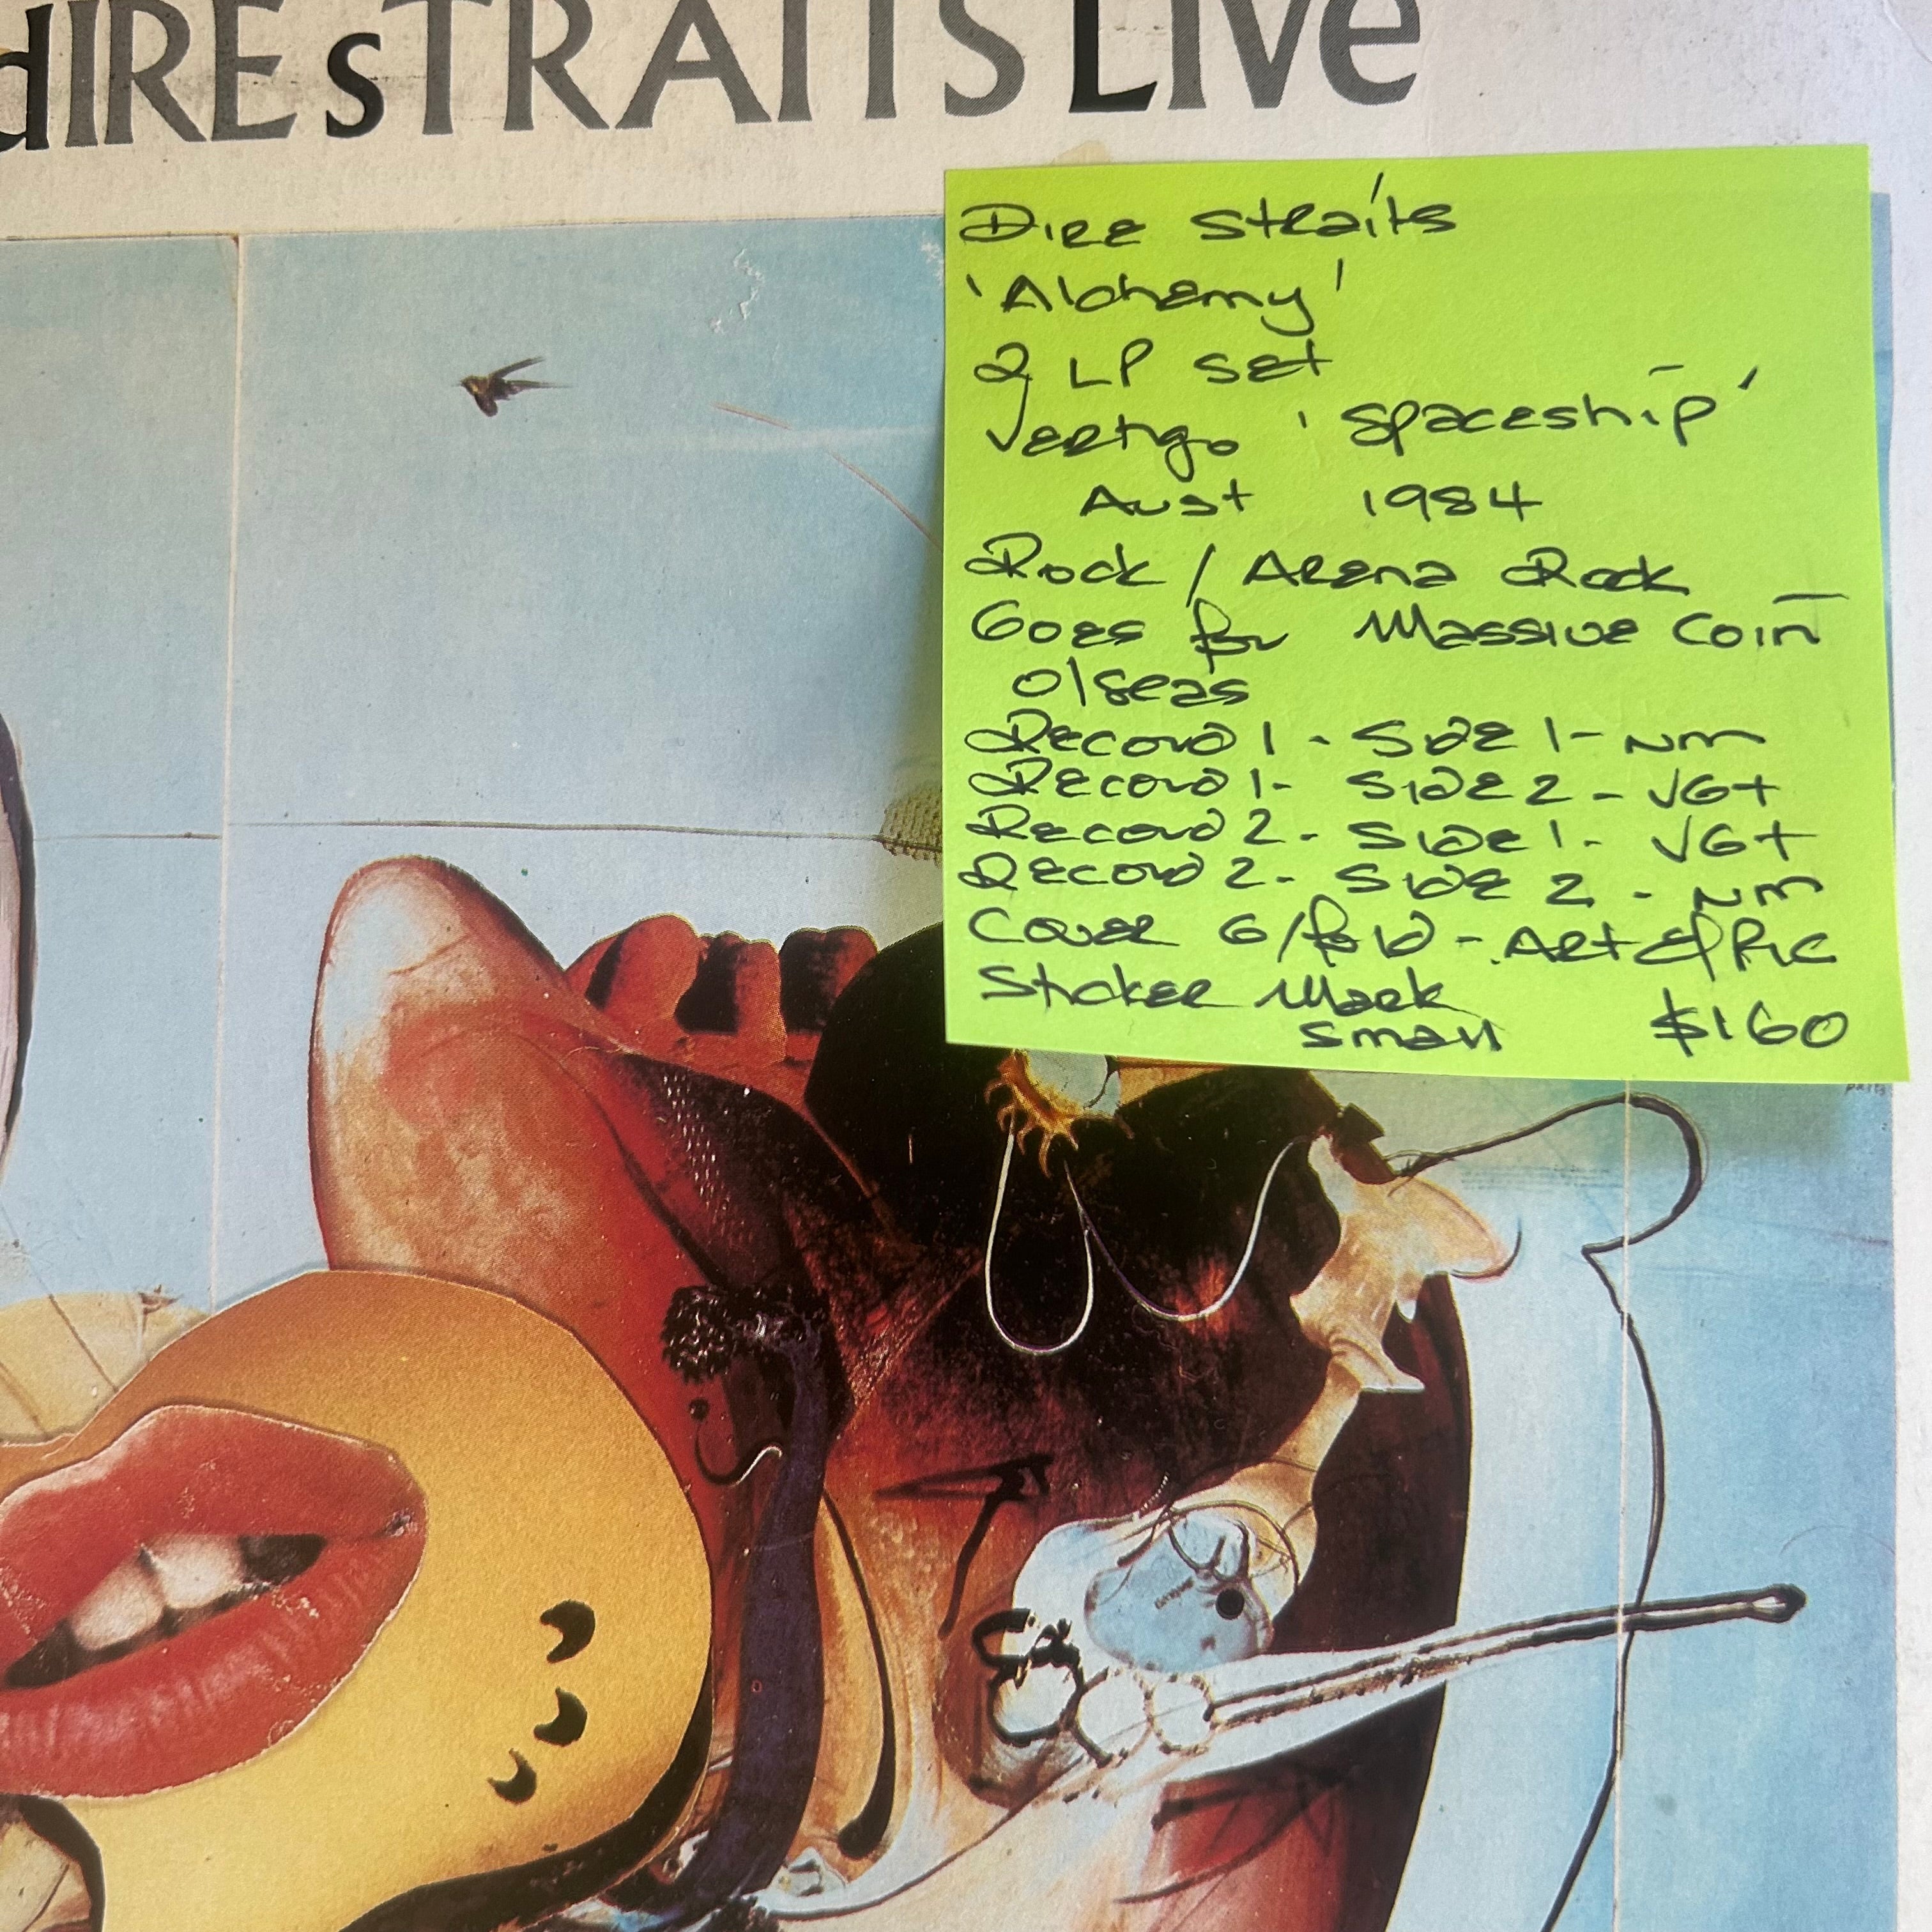 dIRE sTRAITS LIve
Dire Straits
'Alchemy'
2 LP set
Vertigo 'Spaceship'
Aust 1984
Rock / Arena Rock
Goes for Massive Coin
O/seas
Record 1 - Side 1 - NM
Record 1 - Side 2 - VG+
Record 2 - Side 1 - VG+
Record 2 - Side 2 - NM
Cover G/fold - Art &
Sticker Mark
small $160